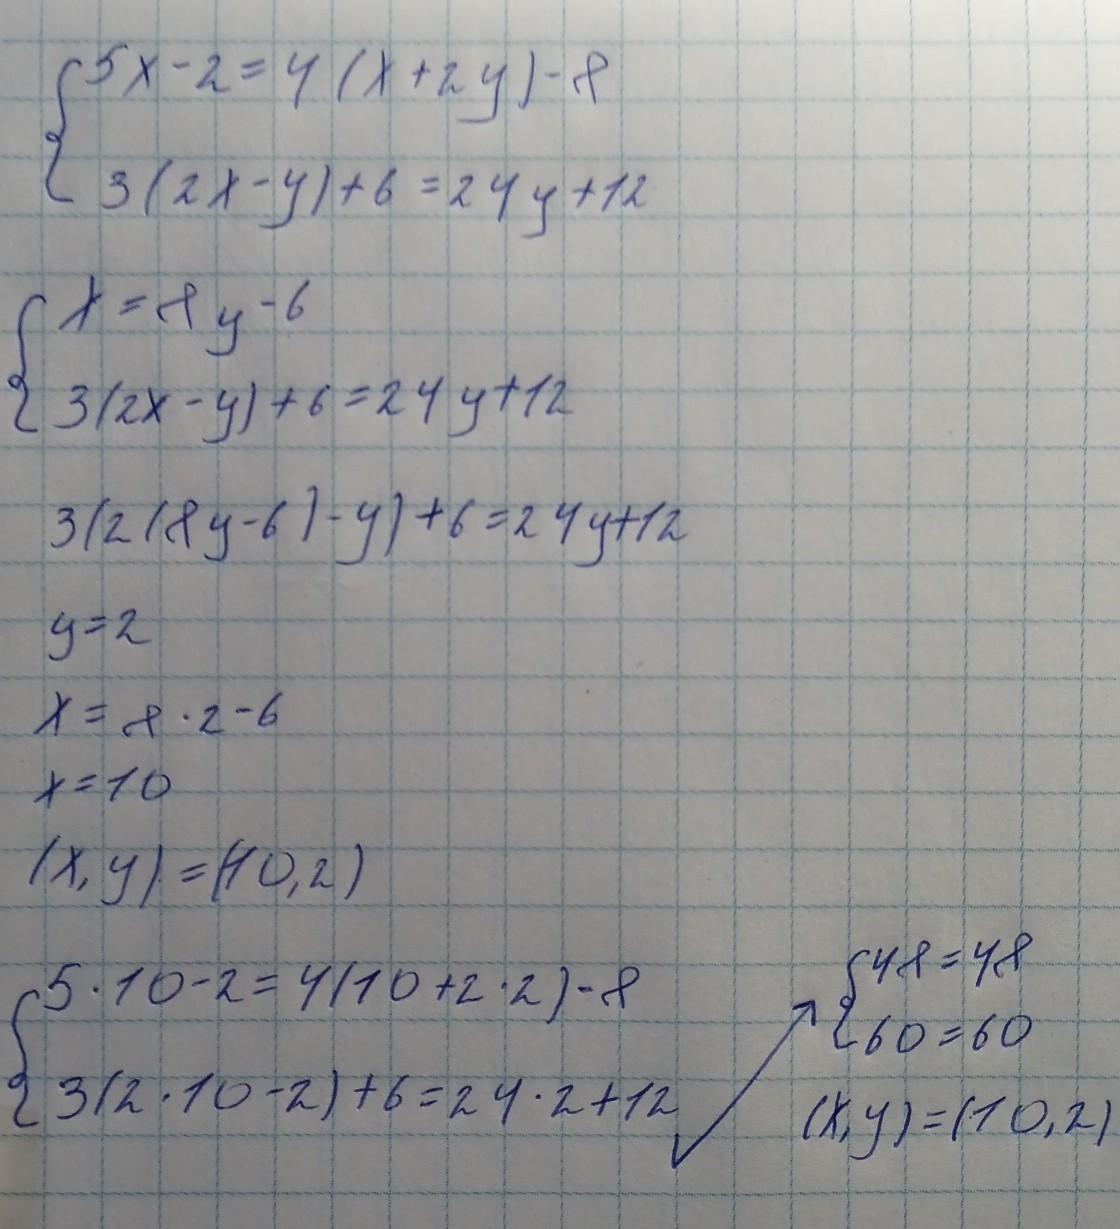 5x-2=4(x+2y)-8
3(2x-y)+6=24y+12
x=8y-6
3(2x-y)+6=24y+12
3(2(8y-6)-y)+6=24y+12
y=2
x=8·2-6
x=10
(x,y)=(10,2)
5·10-2=4(10+2·2)-8
3(2·10-2)+6=24·2+12
48=48
60=60
(x,y)=(10,2)